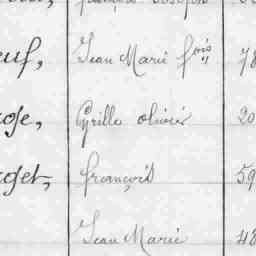 euf, Jean Marie fois 78
Cyrille olivier 20
get, françois 59
Jean Marie 48